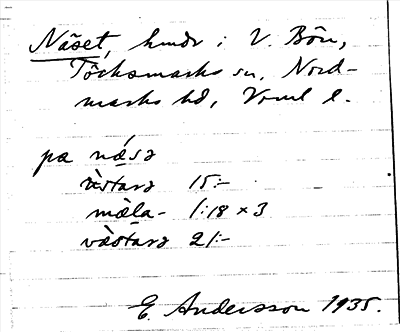 Näset, hmdr i V. Bön,
Töcksmarks sn, Nord-
marks hd, Vrml l.
pa nǽsə
västarə 15:-
mæla- 1:18 × 3
væstarə 21:-
E. Andersson 1935.